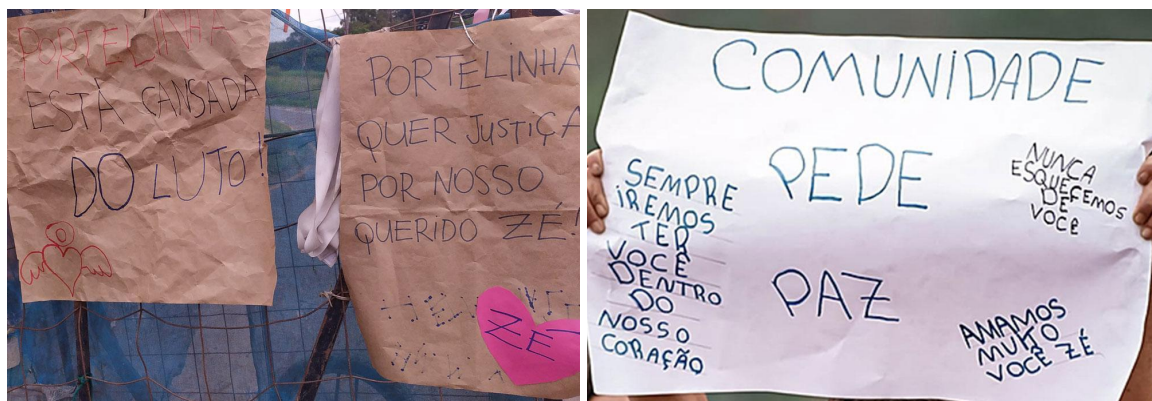 PORTELINHA
ESTÁ CANSADA
DO LUTO!
PORTELINHA
QUER JUSTIÇA
POR NOSSO
QUERIDO ZÉ!
ZÉ
COMUNIDADE
PEDE
PAZ
SEMPRE
IREMOS
TER
VOCÊ
DENTRO
DO
NOSSO
CORAÇÃO
NUNCA
ESQUECEMOS
DE
VOCÊ
AMAMOS
MUITO
VOCÊ ZÉ